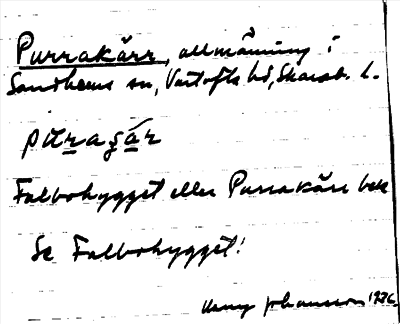 Purrakärr, allmänning i
Sandhems sn, Vartofta hd, Skarab. l.
pùraşár
Falbohygget eller Purrakärr
Se Falbohygget!
Johansson 1926.